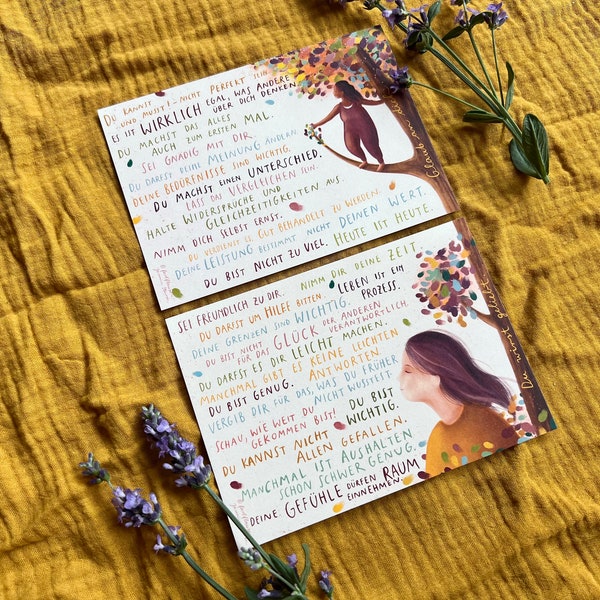 DU KANNST
(UND MUSST!) NICHT PERFEKT SEIN.
ES IST WIRKLICH EGAL, WAS ANDERE
ÜBER DICH DENKEN.
DU MACHST DAS ALLES
AUCH ZUM ERSTEN MAL.
SEI GNÄDIG MIT DIR.
DU DARFST DEINE MEINUNG ÄNDERN.
DEINE BEDÜRFNISSE SIND WICHTIG.
DU MACHST EINEN UNTERSCHIED.
LASS DAS VERGLEICHEN SEIN.
HALTE WIDERSPRÜCHE UND
GLEICHZEITIGKEITEN AUS.
NIMM DICH SELBST ERNST.
DU VERDIENST ES, GUT BEHANDELT ZU WERDEN.
DEINE LEISTUNG BESTIMMT NICHT DEINEN WERT.
DU BIST NICHT ZU VIEL. HEUTE IST HEUTE.
Glaub an dich
SEI FREUNDLICH ZU DIR. NIMM DIR DEINE ZEIT.
DU DARFST UM HILFE BITTEN. LEBEN IST EIN
PROZESS.
DEINE GRENZEN SIND WICHTIG.
DU BIST NICHT FÜR DAS GLÜCK DER ANDEREN
VERANTWORTLICH.
DU DARFST ES DIR LEICHT MACHEN.
MANCHMAL GIBT ES KEINE LEICHTEN
ANTWORTEN.
DU BIST GENUG.
VERGIB DIR FÜR DAS, WAS DU FRÜHER
NICHT WUSSTEST.
SCHAU, WIE WEIT DU
GEKOMMEN BIST!
DU BIST
WICHTIG.
DU KANNST NICHT
ALLEN GEFALLEN.
MANCHMAL IST AUSHALTEN
SCHON SCHWER GENUG.
DEINE GEFÜHLE DÜRFEN RAUM
EINNEHMEN.
Du wirst geliebt.